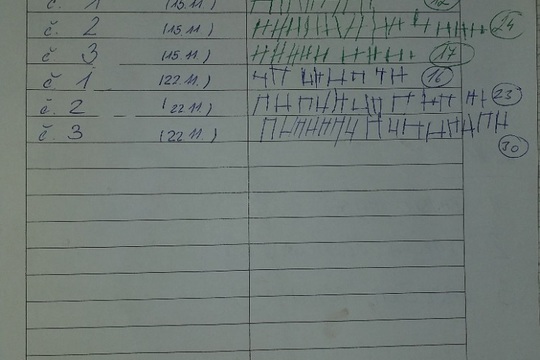 č. 1 (15.11.) 12
č. 2 (15.11.) 24
č. 3 (15.11.) 17
č. 1 (22.11.) 16
č. 2 (22.11.) 23
č. 3 (22.11.)
30